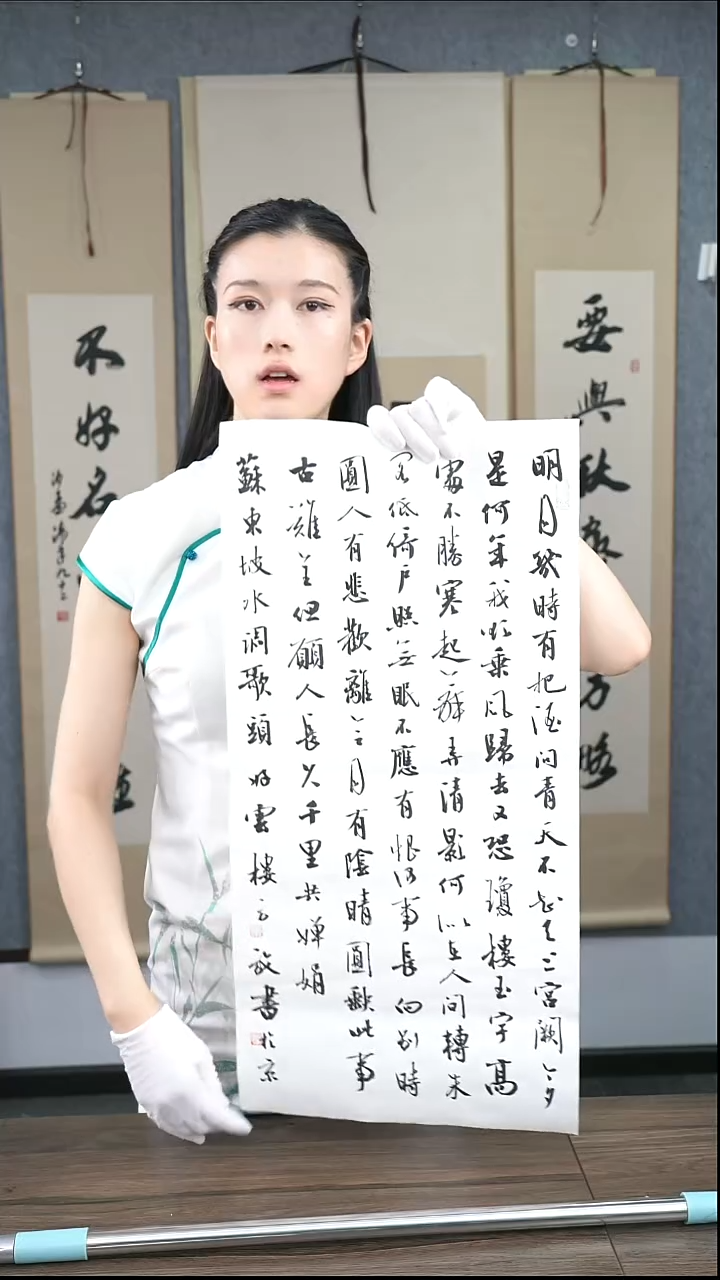 明月幾時有把酒問青天不知天上宮闕今夕
是何年我欲乘風歸去又恐瓊樓玉宇高
處不勝寒起舞弄清影何似在人間轉朱
閣低倚戶照無眠不應有恨何事長向別時
圓人有悲歡離合月有陰晴圓缺此事
古難全但願人長久千里共嬋娟
蘇東坡水調歌頭 好雲樓主 書於京
要與
不好名